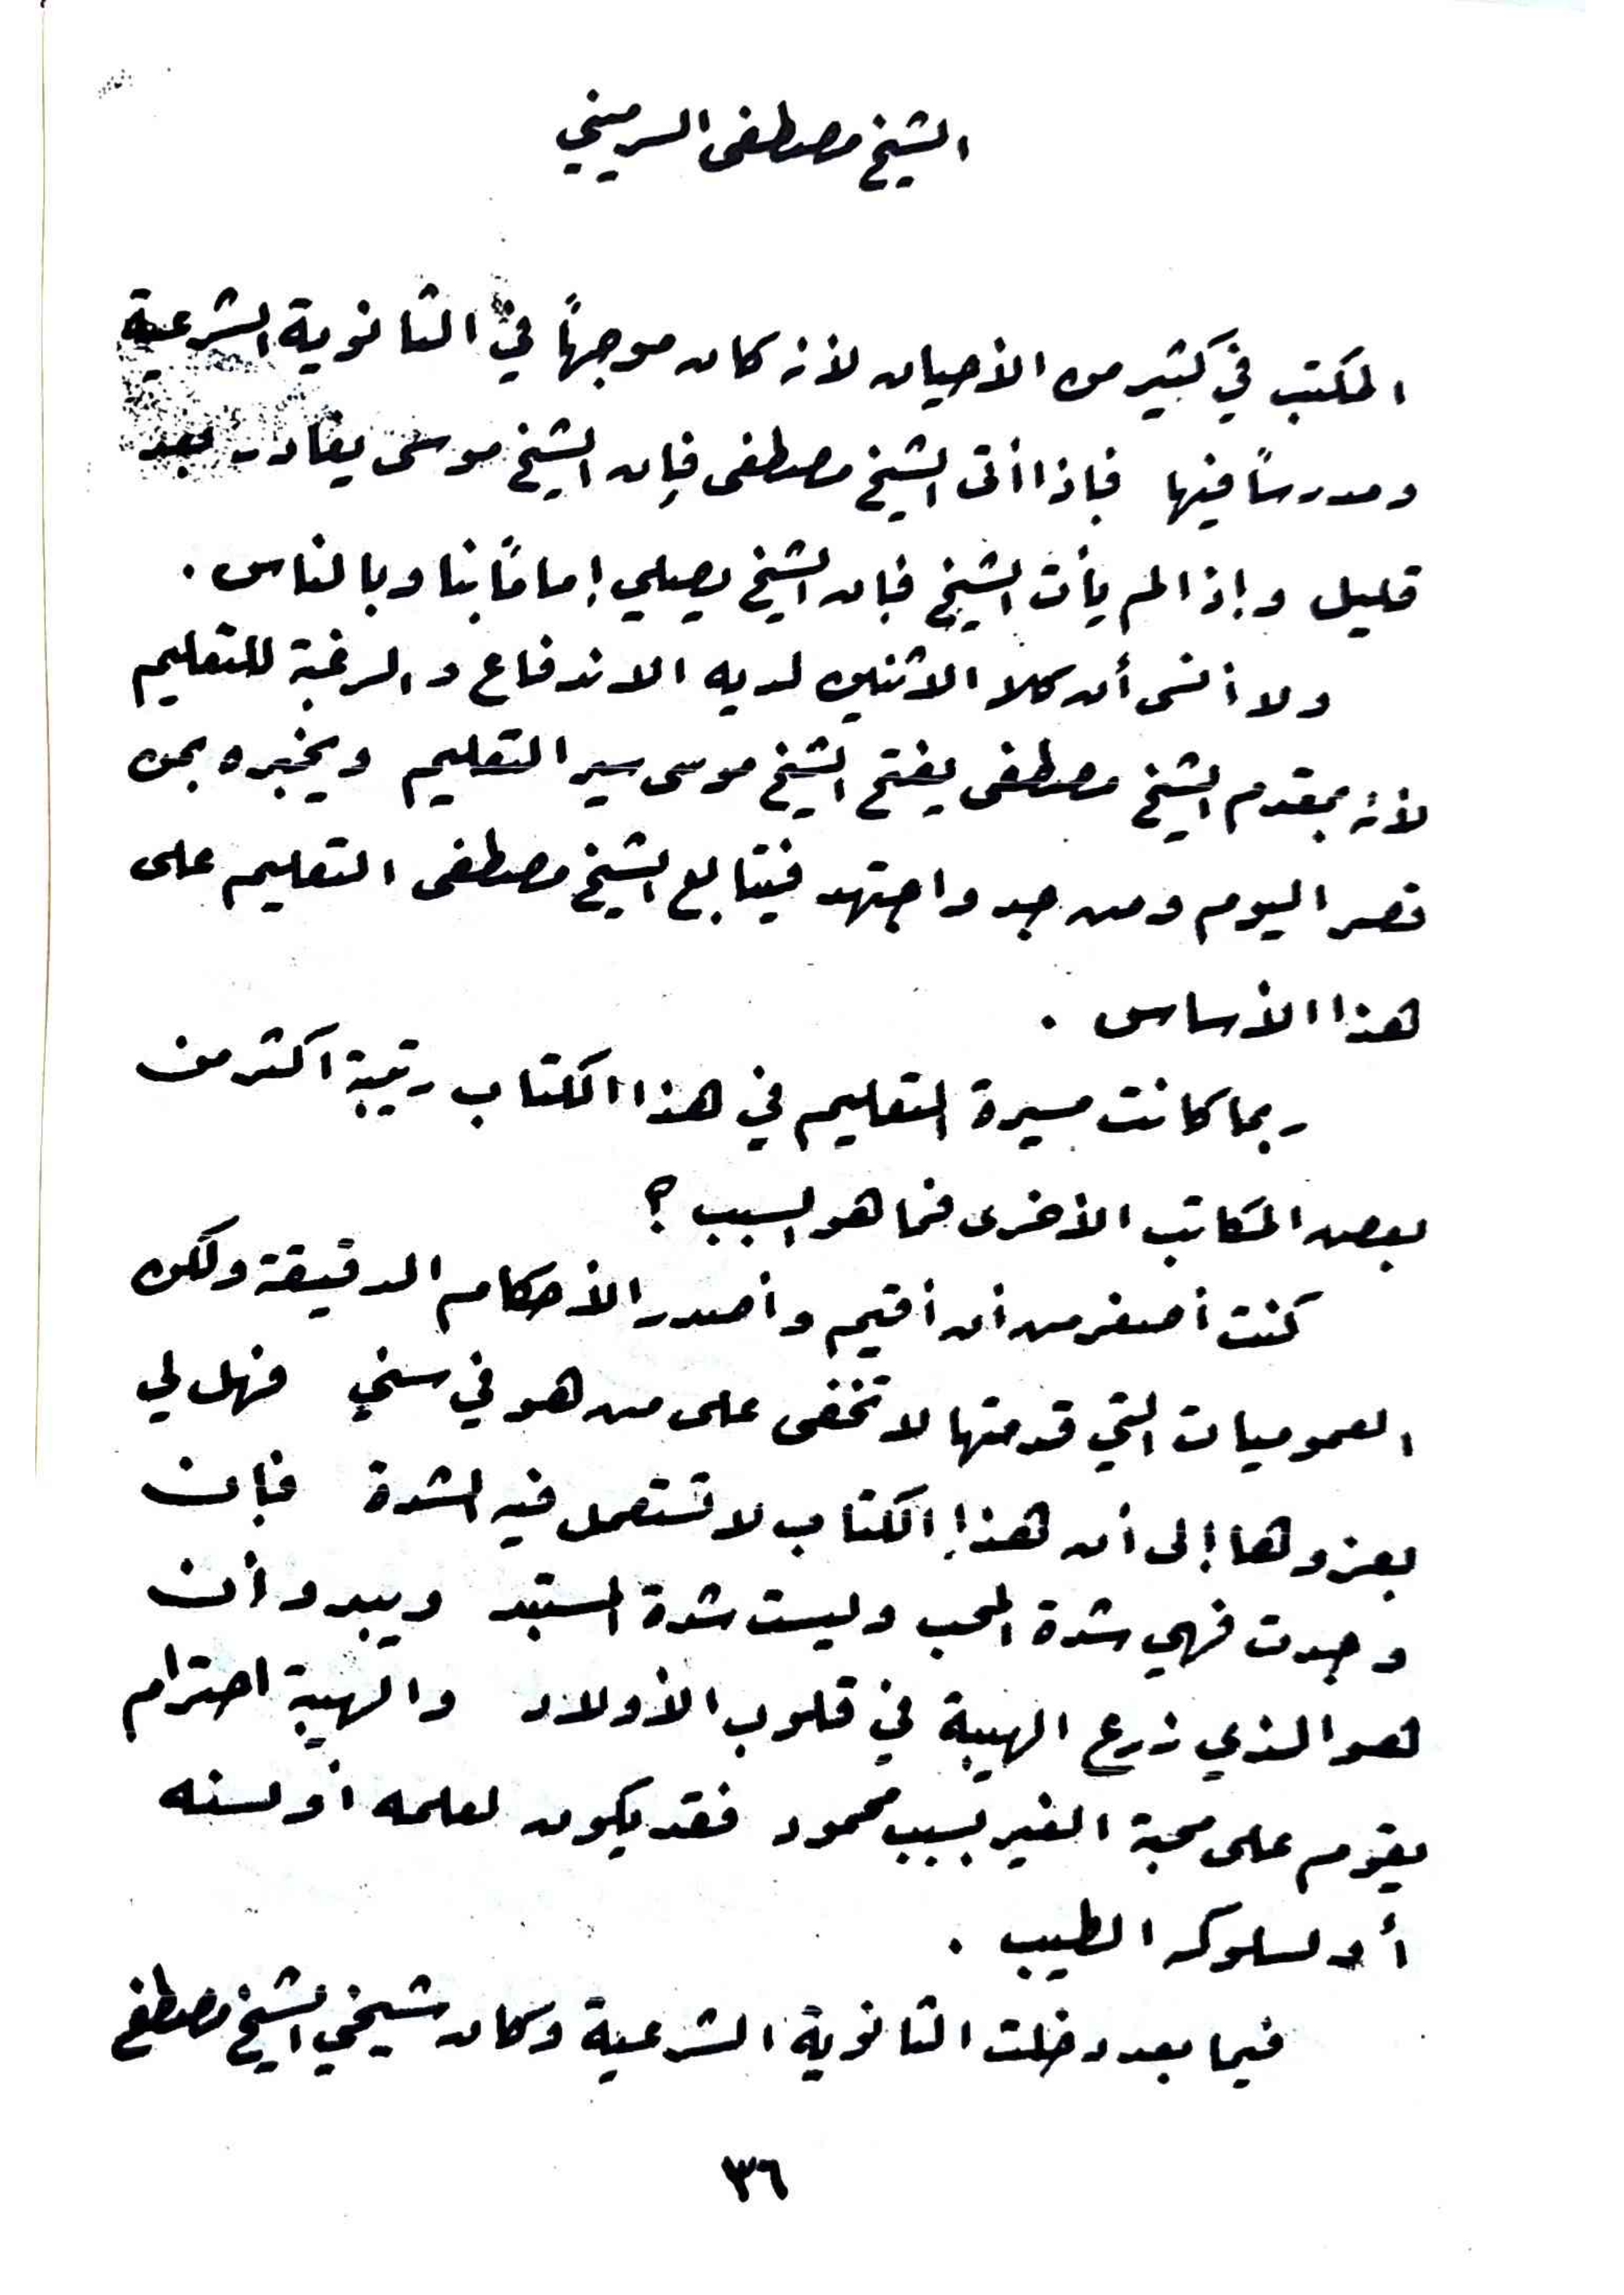 الشيخ مصطفى السرميني
المكتب في كثير من الأحيان لأنه كان موجهاً في الثانوية الشرعية
ومدرساً فيها فإذا أتى الشيخ مصطفى فإن الشيخ موسى يغادر بعد
قليل وإذا لم يأت الشيخ فإن الشيخ يصلي إماماً بنا وبالناس .
ولا أنسى أن كلا الاثنين لديه الاندفاع والرغبة للتعليم
لأنه بمقدم الشيخ مصطفى يفتح الشيخ موسى سير التعليم ويخبره بمن
قصر اليوم ومن جد واجتهد فيتابع الشيخ مصطفى التعليم على
هذا الأساس .
ربما كانت مسيرة التعليم في هذا الكتاب رتيبة أكثر من
بعض المكاتب الأخرى فما هو السبب ؟
كنت أصغر من أن أقيم وأصدر الأحكام الدقيقة ولكن
العموميات التي قدمتها لا تخفى على من هو في سني فهل لي
بعزوها إلى أن هذا الكتاب لا تستعمل فيه الشدة فإن
وجدت فهي شدة المحب وليست شدة المستبد ويبدو أن
هو الذي زرع الهيبة في قلوب الأولاد والهيبة احترام
يقوم على محبة الغير بسبب محمود فقد يكون لعلمه أو لسنه
أو لسلوكه الطيب .
فيما بعد دخلت الثانوية الشرعية وكان شيخي الشيخ مصطفى
٣٦